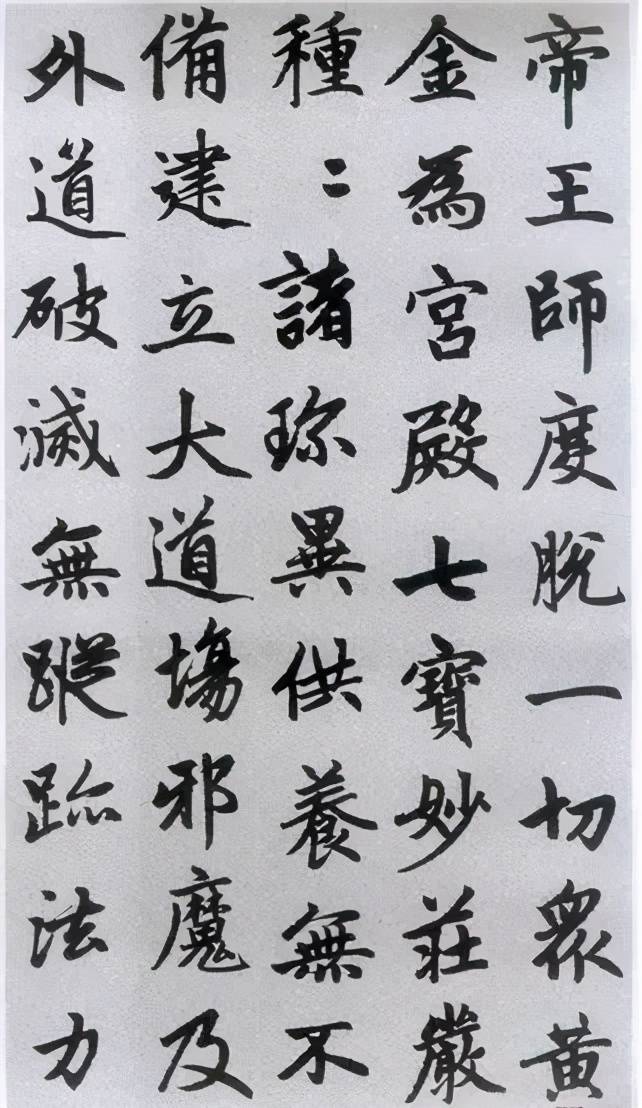 帝王師度脫一切眾黃
金為宮殿七寶妙莊嚴
種〻諸珎異供養無不
備建立大道場邪魔及
外道破滅無蹤跡法力